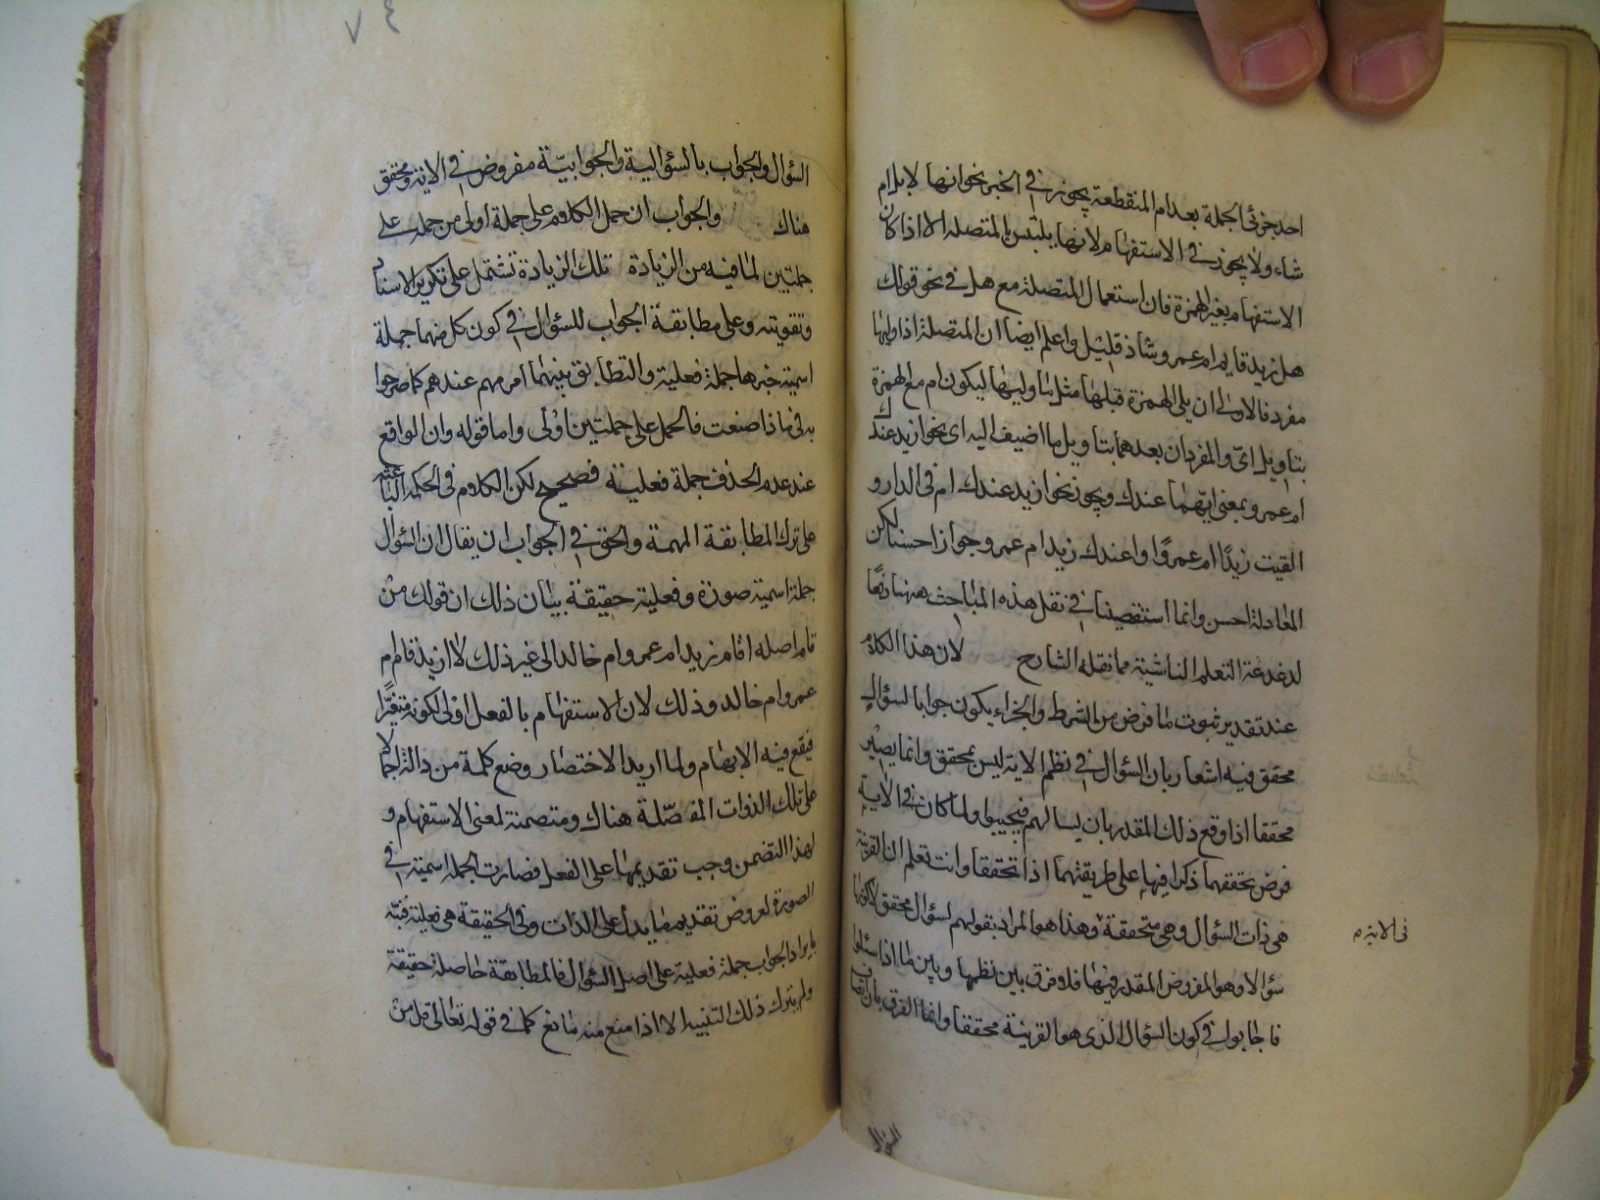 احد جزئى الجملة بعد ام المنقطعة يجوز فى الخبر نحو انها لابل ام
شاء ولا يجوز فى الاستفهام لانها يلتبس بالمتصلة الا اذا كان
الاستفهام بغير الهمزة فان استعمال المتصلة مع هل فى نحو قولك
هل زيد قايم ام عمرو شاذ قليل واعلم ايضا ان المتصلة اذا وليها
مفرد فالاولى ان يلى الهمزة قبلها مثل ما وليها ليكون ام مع الهمزة
بتاويل اى والمفردان بعدهما بتاويل ما اضيف اليه اى نحو ازيد عندك
ام عمرو بمعنى ايهما عندك ويجوز نحو ازيد عندك ام فى الدار و
القيت زيدًا ام عمروًا واعندك زيد ام عمرو جوازا حسنا لكن
المعادلة احسن وانما استقصينا فى نقل هذه المباحث ههنا دفعًا
لدغدغة التعلم الناشية مما نقله الشارح لان هذا الكلام
عند تقدير ثبوت ما فرض من الشرط والجزاء يكون جوابا لسؤال
محقق فيه اشعار بان السؤال فى نظم الاية ليس بمحقق وانما يصير
محققا اذا وقع ذلك المقدر بان يسالهم فيجيبوا ولما كان فى الاية
فرض تحققهما ذكرا فيها على طريقتهما اذا تحققا وانت تعلم ان القرينة
هى ذات السؤال وهى متحققة وهذا هو المراد بقولهم لسؤال محقق لا كونها
فى الاية م
سؤالا وهو المفروض المقدر فيها فلا فرق بين نظمها وبين لما اذا سئلوا
فاجابوا فى كون السؤال الذى هو القرينة محققا وانما الفرق بان اتصاف
السؤال
٤٧
السؤال والجواب بالسؤالية والجوابيّة مفروض فى الاية ومحقق
هناك والجواب ان حمل الكلام على جملة اولى من حمله على
جملتين لما فيه من الزيادة تلك الزيادة تشتمل على تكرير الاسناد
وتقويته وعلى مطابقة الجواب للسؤال فى كون كل منهما جملة
اسمية خبرها جملة فعلية والتطابق بينهما امر مهم عندهم كما صرحوا
به فى ماذا صنعت فالحمل على جملتين اولى واما قوله وان الواقع
عند عدم الحذف جملة فعلية فصحيح لكن الكلام فى الحكمة الباعثة
على ترك المطابقة المهمة والحق فى الجواب ان يقال ان السؤال
جملة اسمية صورة وفعلية حقيقة بيان ذلك ان قولك من
قام اصله اقام زيد ام عمرو ام خالد الى غير ذلك لا ازيد قام ام
عمرو ام خالد وذلك لان الاستفهام بالفعل اولى لكونه متغيّرًا
فيقع فيه الابهام ولما اريد الاختصار وضع كلمة من دالة اجمالا
على تلك الذوات المفصّلة هناك ومتضمنة لمعنى الاستفهام و
لهذا التضمن وجب تقديمها على الفعل فصارت الجملة اسمية فى
الصورة لعروض تقديم ما يدل على الذات وفى الحقيقة هى فعلية فنبّه
بايراد الجواب جملة فعلية على اصل السؤال فالمطابقة حاصلة حقيقة
ولم يترك ذلك التنبيه الا اذا منع منه مانع كما فى قوله تعالى قل من